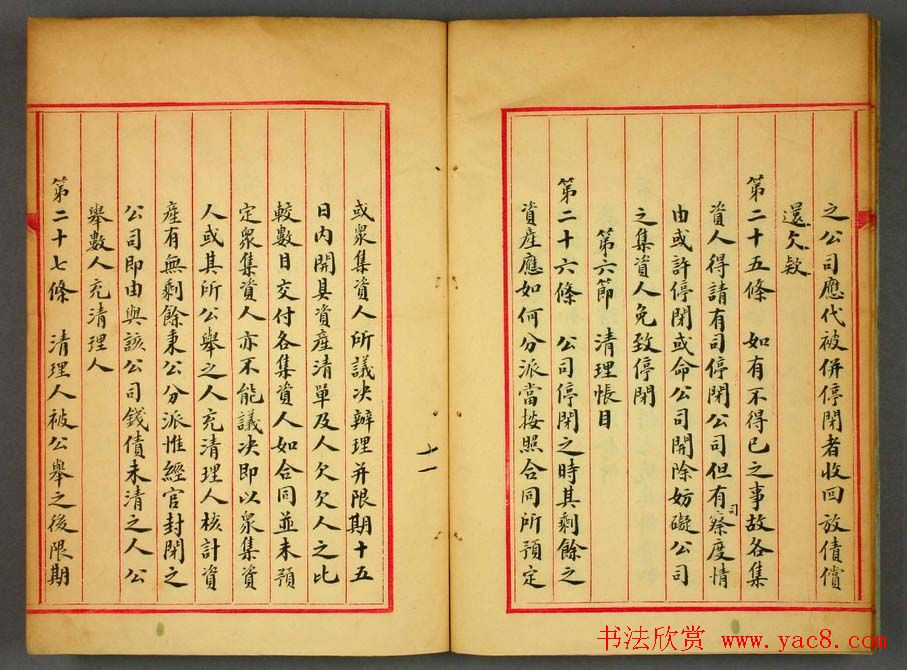 之公司應代被併停閉者收回放債償
還欠款
第二十五條　如有不得已之事故各集
資人得請有司停閉公司但有司察度情
由或許停閉或命公司開除妨礙公司
之集資人免致停閉
第六節　清理帳目
第二十六條　公司停閉之時其剩餘之
資產應如何分派當按照合同所預定
十一
或眾集資人所議决辦理并限期十五
日內開具資產清單及人欠欠人之比
較數目交付各集資人如合同並未預
定眾集資人亦不能議决即以眾集資
人或其所公舉之人充清理人核計資
產有無剩餘秉公分派惟經官封閉之
公司即由與該公司錢債未清之人公
舉數人充清理人
第二十七條　清理人被公舉之後限期
书法欣赏 www.yac8.com